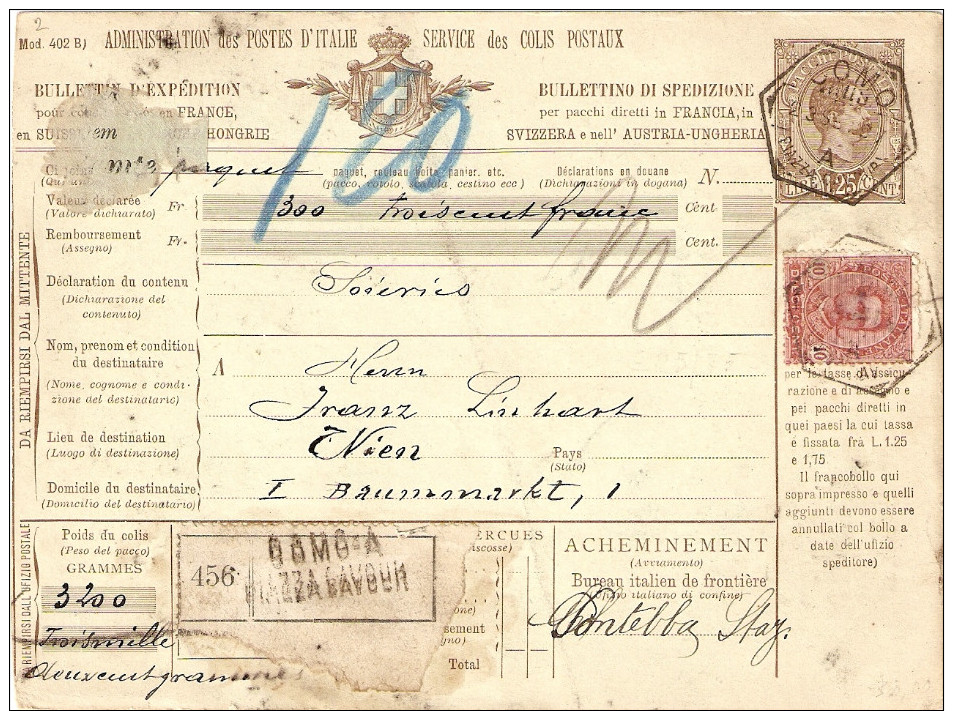 2
Mod. 402 B) ADMINISTRATION des POSTES D'ITALIE SERVICE des COLIS POSTAUX
BULLETIN D'EXPÉDITION
BULLETTINO DI SPEDIZIONE
en FRANCE,
per pacchi diretti in FRANCIA, in
en SUISS HONGRIE
SVIZZERA e nell' AUSTRIA-UNGHERIA
COMO
A
LIRE 1.25 CENT
paquet, rouleau, boîte, panier. etc.
(pacco, rotolo, scatola, cestino ecc)
Déclarations en douane
(Dichiarazioni in dogana)
N.
150
Valeur déclarée
(Valore dichiarato)
Fr 300 Troiscent franc Cent
Remboursement
(Assegno)
Fr. Cent.
Déclaration du contenu
(Dichiarazione del
contenuto)
Soieries
10
10
DA RIEMPIRSI DAL MITTENTE
Nom, prenom et condition
du destinataire
(Nome, cognome e condi-
zione del destinatario)
A Herrn
Franz Linhart
Lieu de destination
(Luogo di destinazione)
Wien
Pays
(Stato)
Domicile du destinataire
(Domicilio del destinatario)
I Baummarkt, 1
per le tasse d'assicu-
razione e di assegno e
pei pacchi diretti in
quei paesi la cui tassa
è fissata frà L. 1.25
e 1,75
Il francobollo qui
sopra impresso e quelli
aggiunti devono essere
annullati col bollo a
date dell'ufizio
speditore)
A RIEMPIRSI DALL'UFIZIO POSTALE
Poids du colis
(Peso del pacco)
GRAMMES
3200
Troismille
deuxcentgrammes
456
COMO-A
PIAZZA CAVOUR
ERCUES
iscosse)
one)
sement
gno)
Total
ACHEMINEMENT
(Avviamento)
Bureau italien de frontière
italiano di confine)
Pontebba Staz.